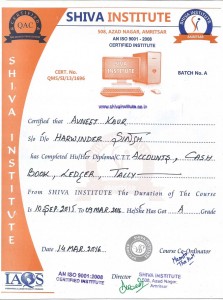 QAC
SHIVA INSTITUTE
548, AZAD NAGAR, AMRITSAR
AN ISO 9001 : 2008
CERTIFIED INSTITUTE
SHIVA INSTITUTE
CERT. No.
BATCH No. A
www.shivainstitute.co.in
Certified that AVNEET KAUR
S/o D/o HARWINDER SINGH
has Completed His/Her Diploma/C.T.T. ACCOUNTS, CASH
BOOK, LEDGER, TALLY
From SHIVA INSTITUTE The Duration of The Course
10 SEP. 2015 To 09 MAR. 2016. He/She Has Got A Grade
Date 14 MAR. 2016.
Course Co-Ordinator
IAQS
AN ISO 9001:2008
CERTIFIED INSTITUTE
Director
SHIVA INSTITUTE
Azad Nagar,
Amritsar